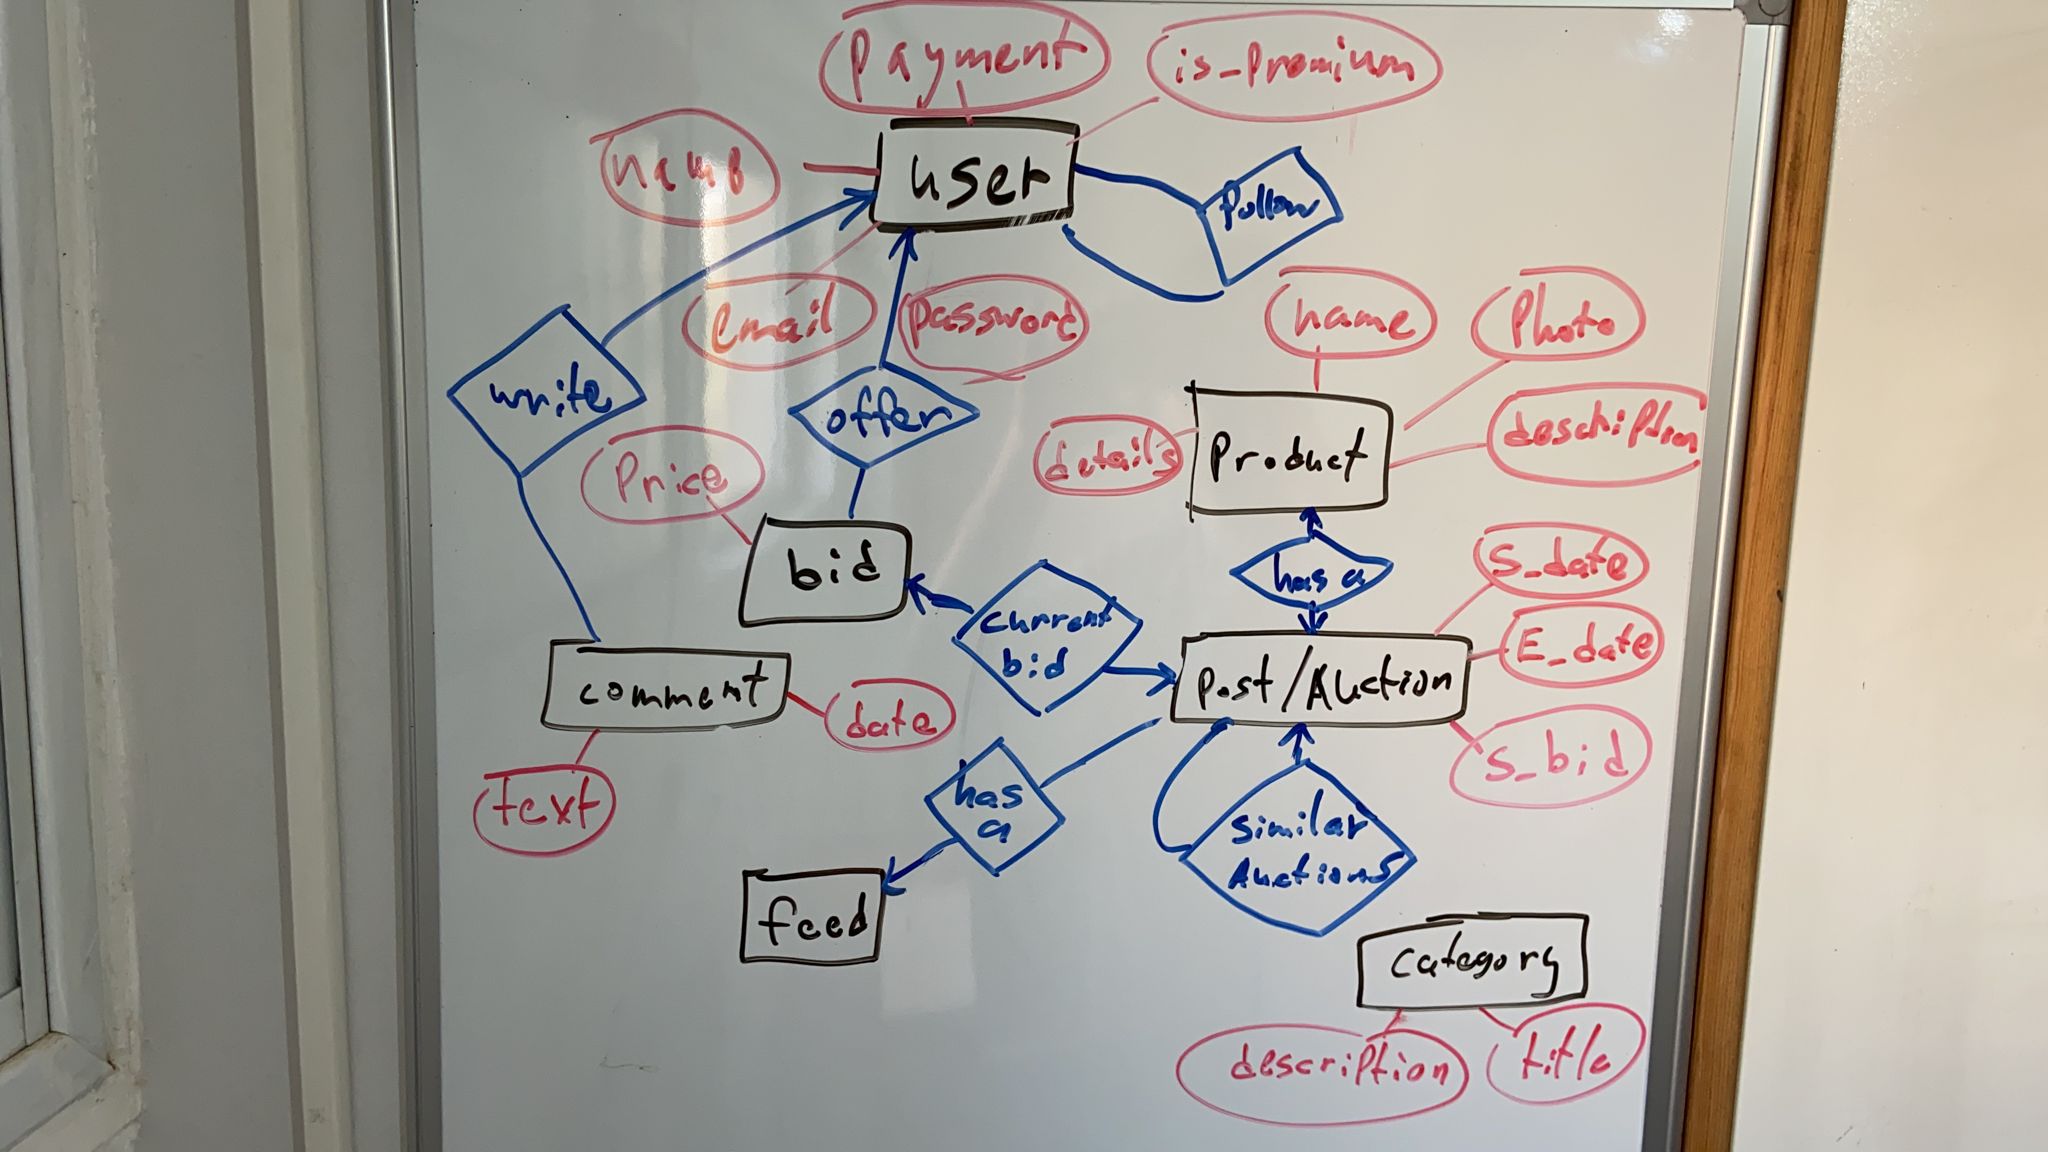 Payment
is_Premium
name
user
Follow
email
password
name
Photo
write
offer
description
details
Product
Price
bid
has a
S_date
current
bid
E_date
comment
Post/Auction
date
S_bid
has
a
text
similar
Auctions
feed
category
description
title